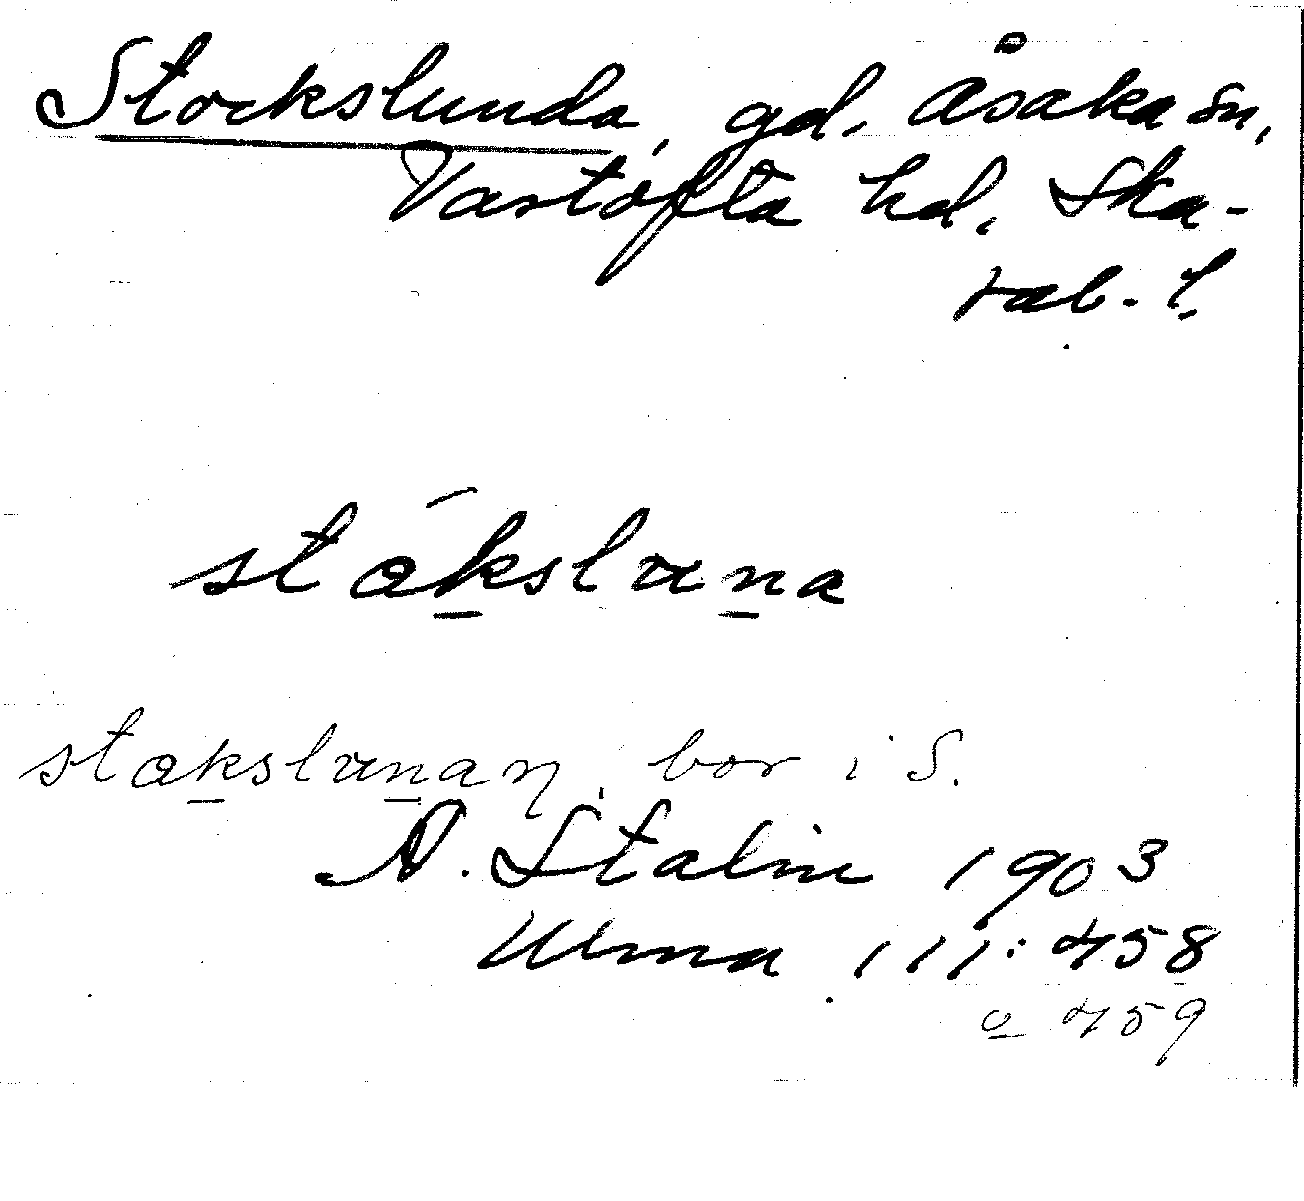 Stockslunda, gd. Åsaka sn,
Vartofta hd. Ska-
rab. l.
stákslɯna
stakslɯnaɲ, bor i S.
A. Stalin 1903
Ulma 111:458
o 459